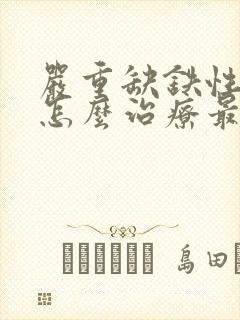 嚴重缺鉄性
怎麽治療最
島田